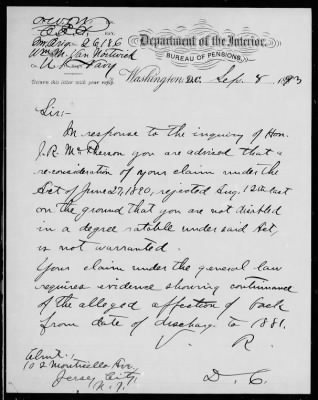 Department of the Interior,
BUREAU OF PENSIONS,
26186
Wm. M. Van Nortwick
Co. U.S. Navy
Return this letter with your reply.
Washington, D.C. Sep. 8 1893
Sir:-
In response to the inquiry of Hon.
J.R. McPherson you are advised that a
reconsideration of your claim under the
Act of June 27, 1890, rejected Aug. 12th last
on the ground that you are not disabled
in a degree ratable under said Act,
is not warranted.
Your claim under the general law
requires evidence showing continuance
of the alleged affection of back
from date of discharge to 1881.
V. R.
D. C.
Clmt.,
102 Monticello Ave.,
Jersey City,
N.J.